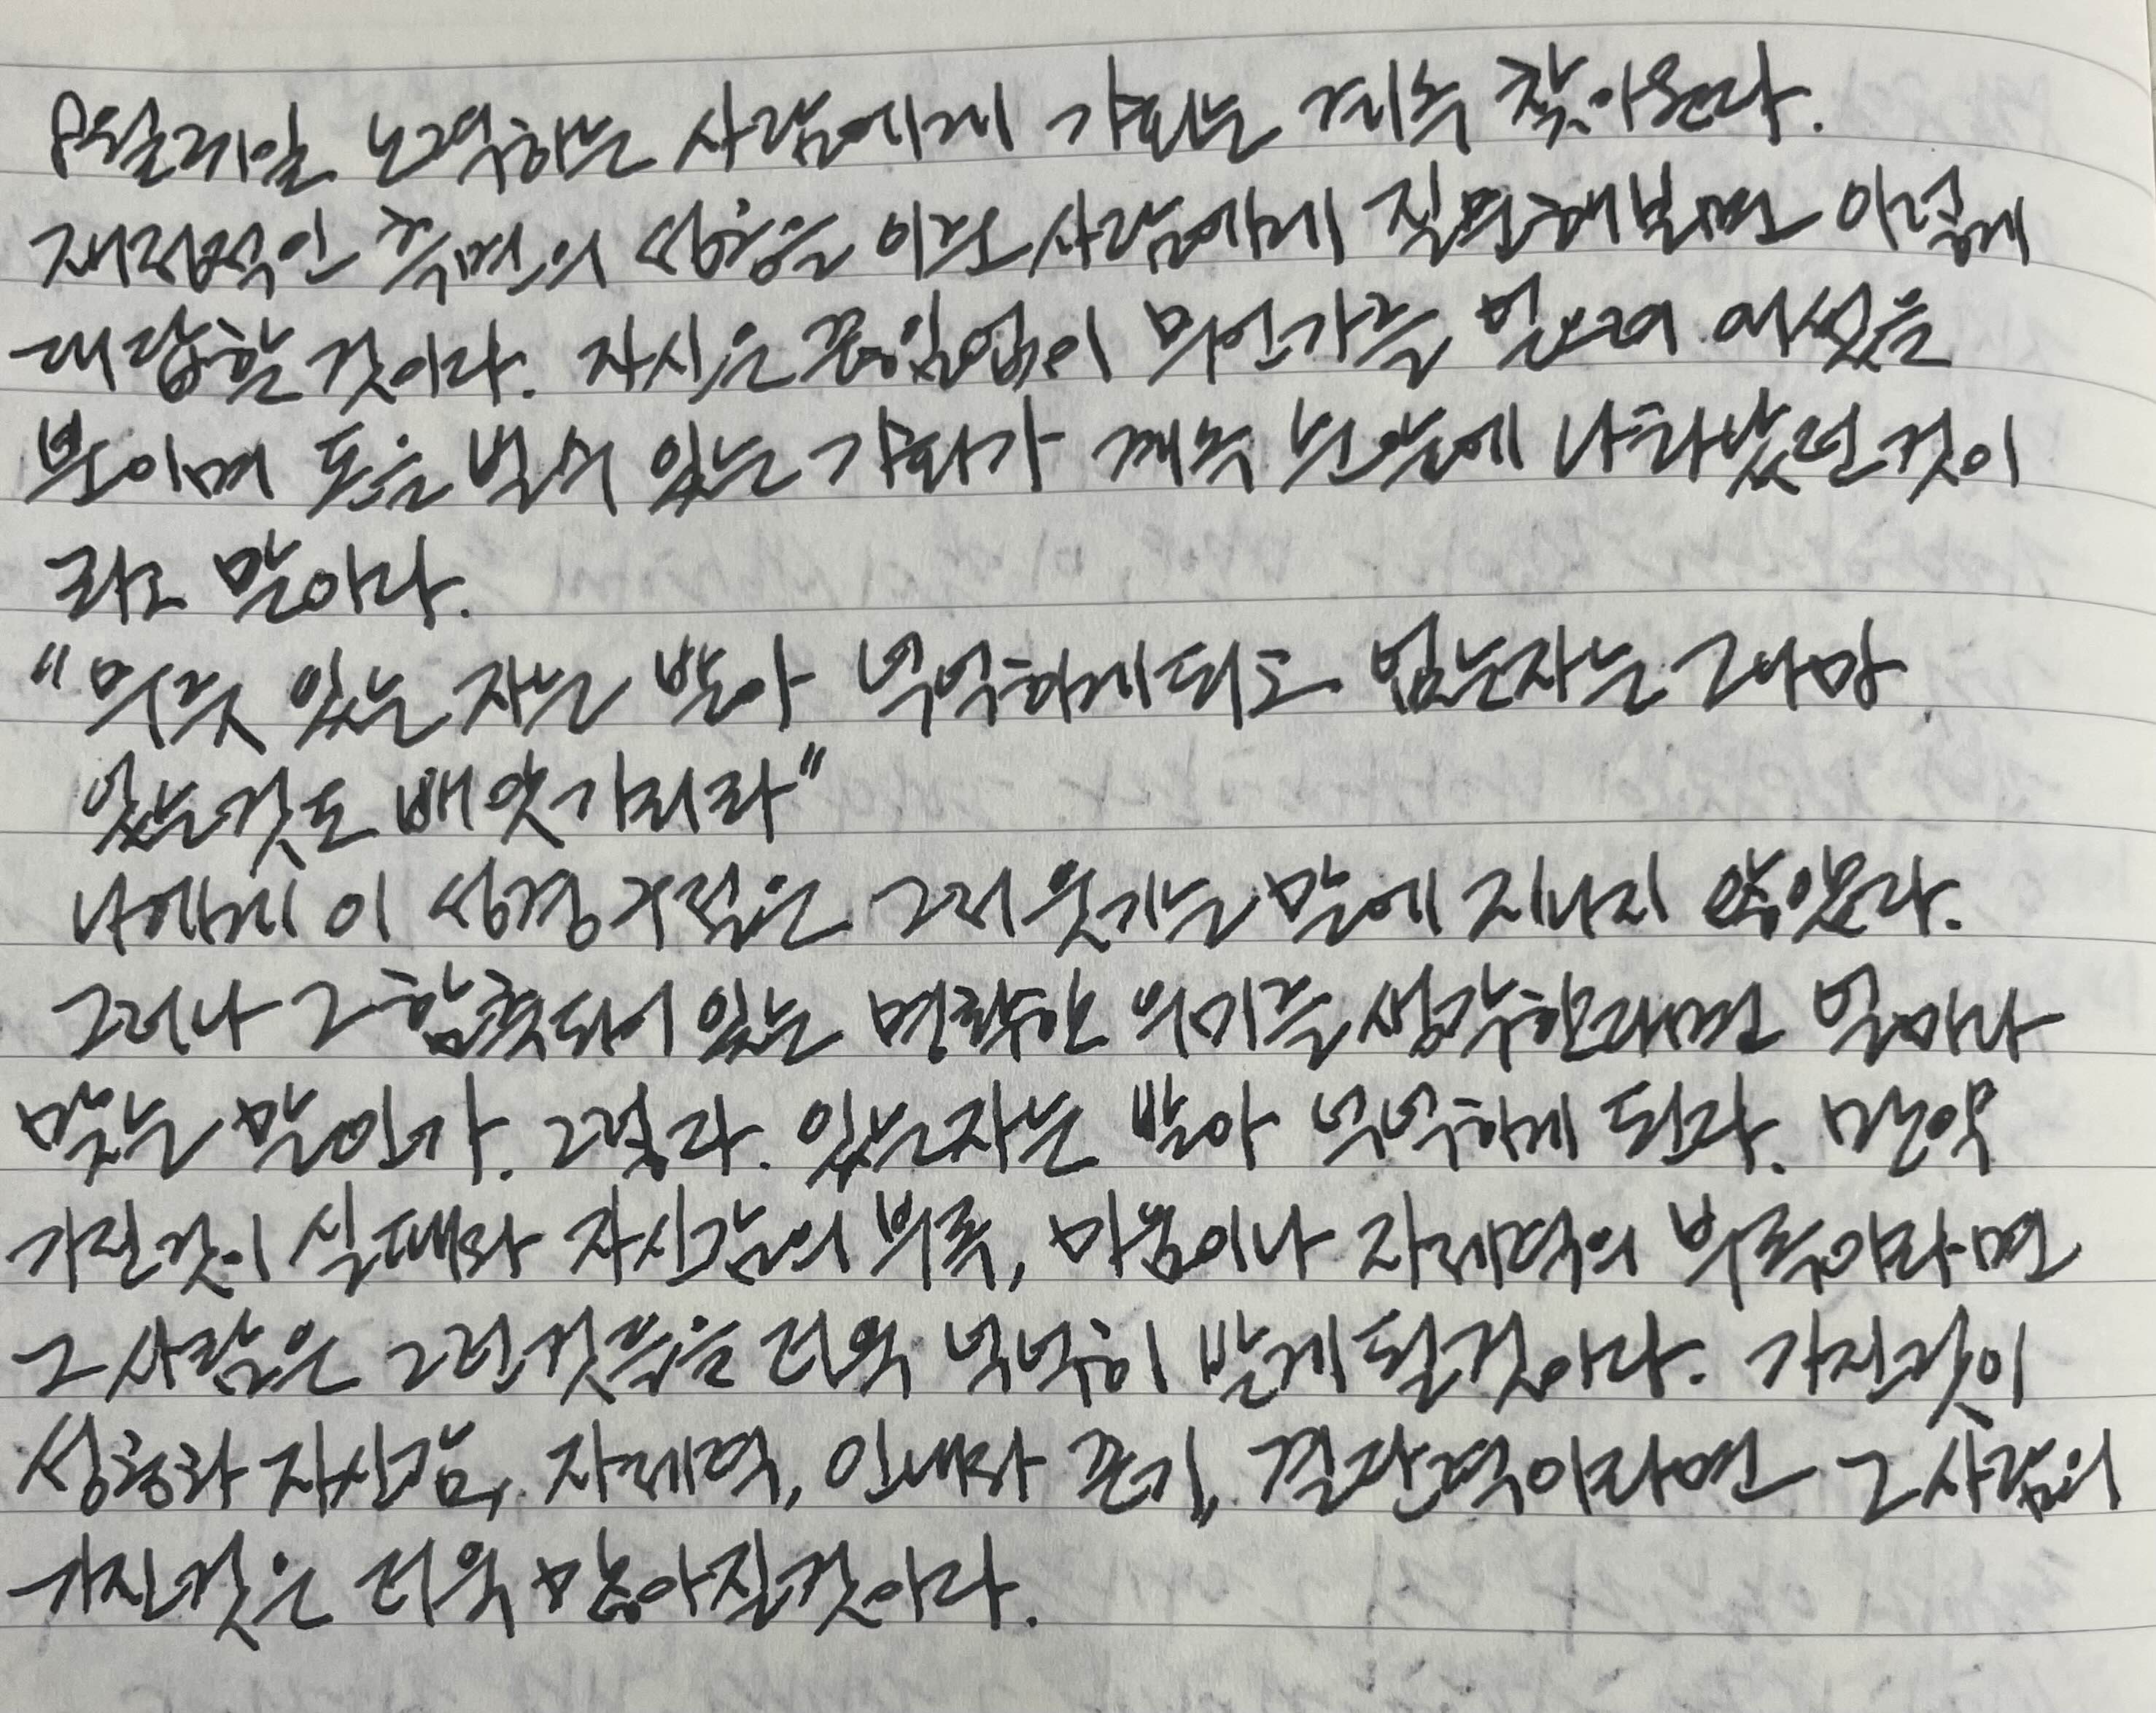 노력하는 사람에게 기회는 계속 찾아온다.
재정적인 측면의 성공을 이룬 사람에게 질문해보면 이렇게
대답할 것이다. 자신은 끊임없이 무언가를 얻으려 애썼을
뿐이며 돈을 벌 수 있는 기회가 계속 눈앞에 나타났던 것이
라고 말이다.
"무릇 있는 자는 받아 넉넉하게 되고 없는자는 그나마
있는것도 빼앗기리라"
나에게 이 성경 구절은 그저 웃기는 말에 지나지 않았다.
그러나 그 함축되어 있는 명확한 의미를 생각한다면 얼마나
맞는 말인가. 그렇다. 있는자는 받아 넉넉하게 된다. 만약
가진것이 실패와 자신감의 부족, 마음이나 자제력의 부족이라면
그 사람은 그런것들을 더욱 넉넉히 받게 될것이다. 가진것이
성공과 자신감, 자제력, 인내와 끈기, 결단력이라면 그 사람의
가진것은 더욱 많아질것이다.